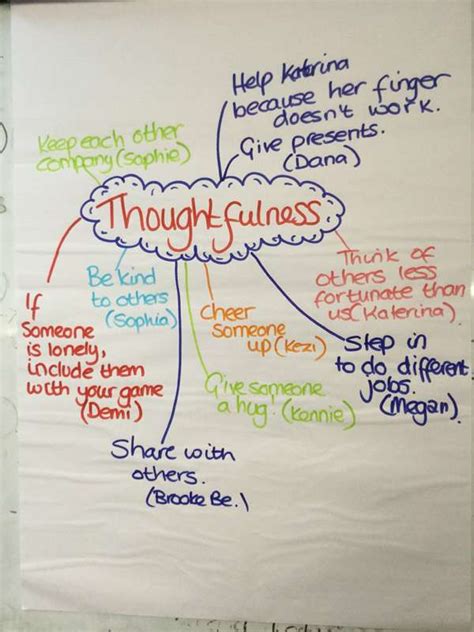 Help Katerina
because her finger
doesn't work.
Give presents.
(Dana)
Keep each other
company (Sophie)
Thoughtfulness
Think of
others less
fortunate than
us (Katerina)
Be kind
to others
(Sophia)
Cheer
someone
up (Kezi)
If
someone
is lonely,
include them
with your game
(Demi)
Step in
to do different
jobs.
(Megan)
Give someone
a hug. (Kennie)
Share with
others.
(Brooke Be.)